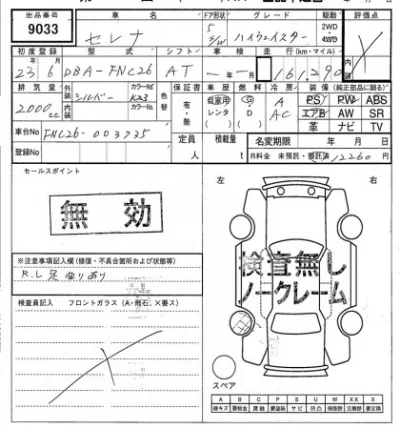 出品番号 車名 ドア形状 グレード 駆動 評価点
9033 セレナ 5 S/W ハイウェイスター 2WD 4WD
初度登録 型式 シフト 車検 走行(km・マイル) 内装
23年6月 DBA-FNC26 AT 年 月 161,290
排気量 外装 シルバー カラーNo K23 色替 保証書 車歴 燃料 冷房 装備(純正部品に限る)
2000cc 内装 カラーNo 有・無 自家用 レンタ G D A AC PS PW ABS
エアB AW SR
革 ナビ TV
車台No FNC26-003235 定員 人 積載量 t 名変期限 年 月 日
登録No R料金 未預託・預託済 12260円
セールスポイント 左 右
無効
※注意事項記入欄(修復・不具合箇所および状態等)
検査無し
ノークレーム
検査員記入 フロントガラス(A・飛石、X要ス)
スペア
A B C P S U W X XX